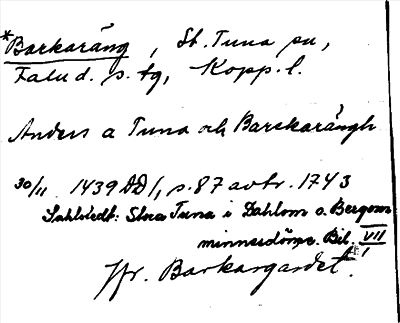 *Barkaräng, St. Tuna sn,
Falu d. s. tg, Kopp. l.
Anders a Tuna och Barskarängh
30/11 1439 DD 1, s. 87 avtr. 1743
Sahlstedt: Stora Tuna i Dahlom o. Bergom
minnesdöme. Bil. VII
Jfr. Barkargärdet!